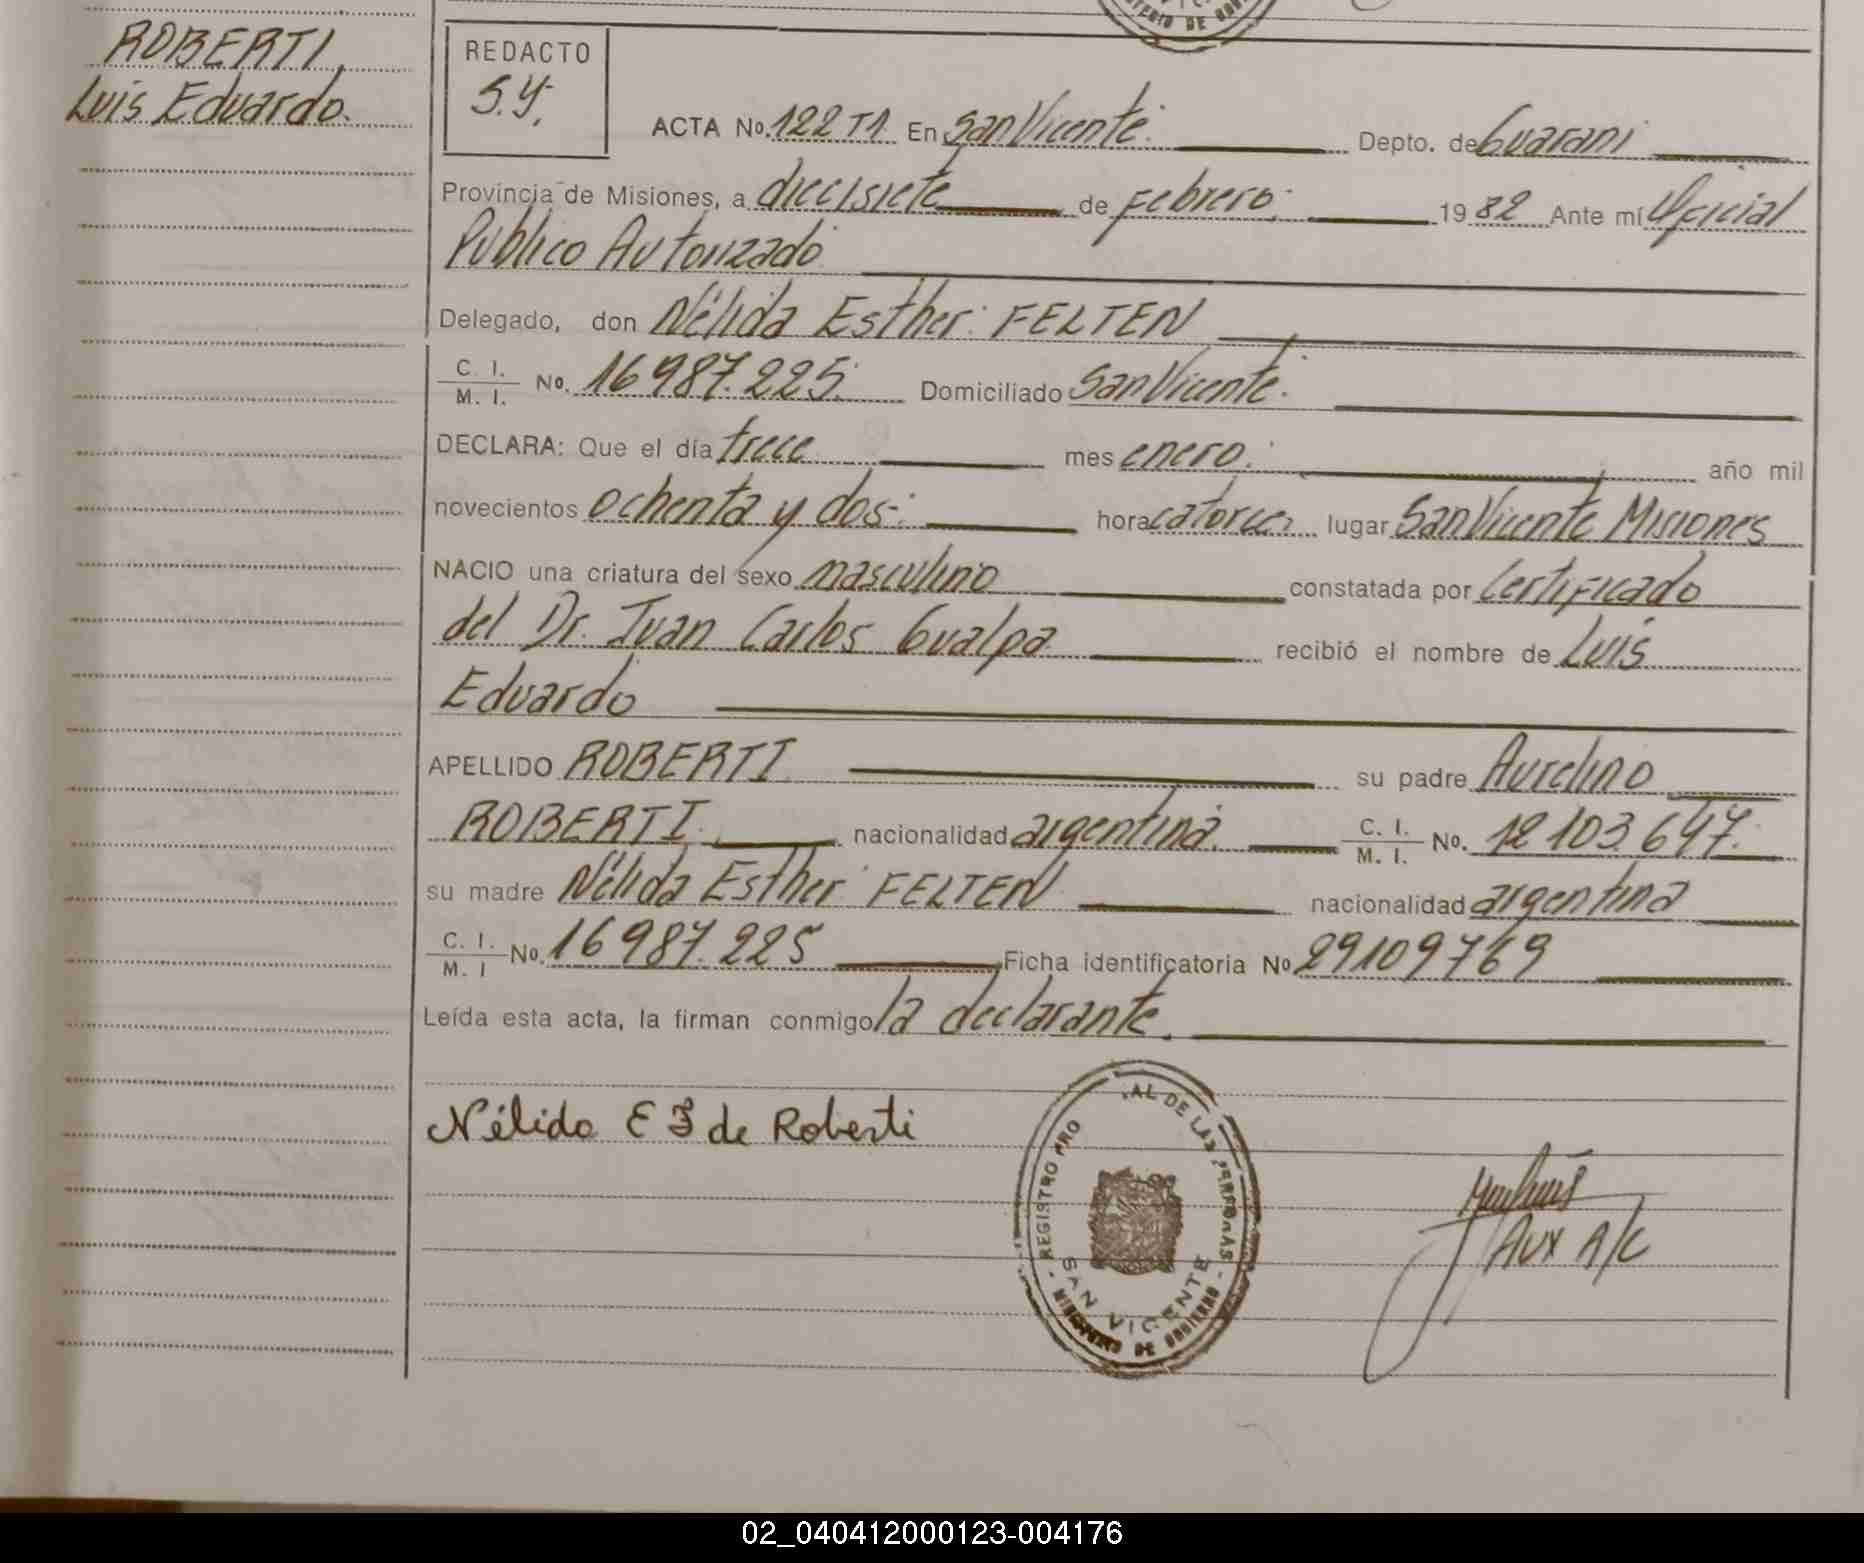 ROBERTI,
Luis Eduardo.
REDACTO
S.Y.
ACTA No. 122 T1 En San Vicente. Depto. de Guarani
Provincia de Misiones, a diecisiete de Febrero. 1982 Ante mí Oficial
Publico Autorizado
Delegado, don Nélida Esther FELTEN
C. I. / M. I. No. 16 987.225. Domiciliado San Vicente.
DECLARA: Que el día trece mes enero. año mil
novecientos ochenta y dos hora catorce. lugar San Vicente Misiones
NACIO una criatura del sexo masculino constatada por Certificado
del Dr. Juan Carlos Gualpa recibió el nombre de Luis
Eduardo
APELLIDO ROBERTI su padre Aurelino
ROBERTI. nacionalidad argentina. C. I. / M. I. No. 12 103.647.
su madre Nélida Esther FELTEN nacionalidad argentina
C. I. / M. I No. 16 987.225 Ficha identificatoria No 29109769
Leída esta acta, la firman conmigo la declarante.
Nélida E F de Roberti
REGISTRO PRO AL DE LAS PERSONAS
SAN VICENTE
MINISTERIO DE GOBIERNO
AUX A/C
02_040412000123-004176